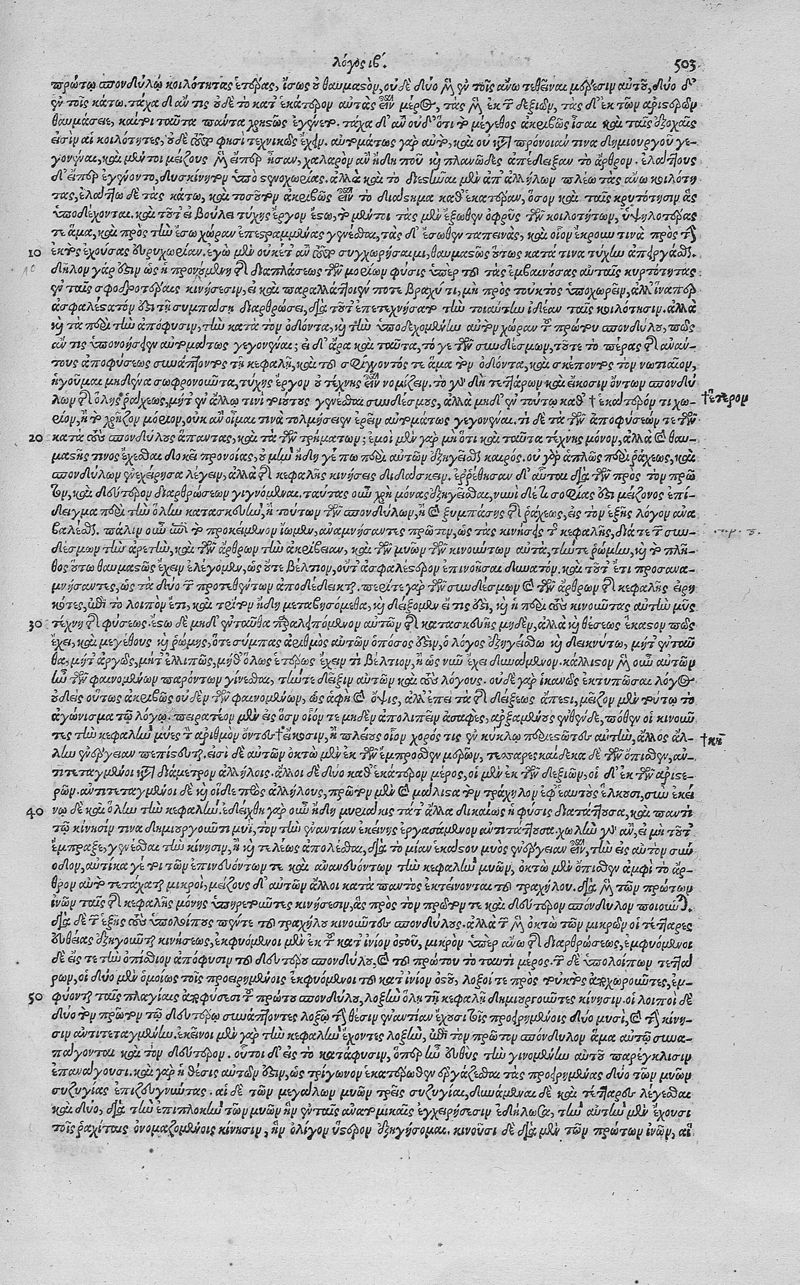 λόγος ιβ΄. 503
πρώτῳ σπονδύλῳ κοιλότητας ἑτέρας, ἴσως οὐ θαυμαστὸν, οὐδὲ δύο μὲν ἐν τοῖς ἄνω τεθεῖναι μέρεσιν αὐτοῦ, δύο δ'
ἐν τοῖς κάτω. τάχα δ' ἄν τις οὐδὲ τὸ κατ' ἑκάτερον αὐτὰς εἶναι μέρος, τὰς μὲν ἐκ τῶν δεξιῶν, τὰς δ' ἐκ τῶν ἀριστερῶν
θαυμάσειε, καίτοι ταῦτα πάντα χρηστῶς ἐγένετο. τάχα δ' ἂν οὐδ' ὅτι τὸ μέγεθος ἀκριβῶς ἴσαι καὶ ταῖς ἐξοχαῖς
εἰσὶν αἱ κοιλότητες, οὐδὲ τοῦτό φησι τεχνικῶς ἔχειν. αὐτομάτως γὰρ αὐτὸ, καὶ οὐ κατὰ πρόνοιάν τινα δημιουργοῦ γε-
γονέναι, καὶ μέντοι μείζους μὲν εἴπερ ἦσαν, χαλαρὸν ἂν ἤδη που καὶ πλανῶδες ἀπέδειξαν τὸ ἄρθρον. ἐλάττους
δ' εἴπερ ἐγένοντο, δυσκίνητον ὑπὸ στενοχωρίας. ἀλλὰ καὶ τὸ διεστάναι μὲν ἀπ' ἀλλήλων πλέω τὰς ἄνω κοιλότη-
τας, ἐλάττω δὲ τὰς κάτω, καὶ τοσοῦτον ἀκριβῶς εἶναι τὸ διάστημα καθ' ἑκατέραν, ὅσον καὶ ταῖς κυρτότησιν ἃς
ὑποδέχονται. καὶ τοῦτ' εἰ βούλει τύχης ἔργον ἔστω, τὸ μέντοι τὰς μὲν ἔξωθεν ὀφρῦς τῶν κοιλοτήτων, ὑψηλοτέρας
τε ἅμα, καὶ πρὸς τὴν ἔσω χώραν ἐπεστραμμένας γενέσθαι, τὰς δ' ἔσωθεν ταπεινὰς, καὶ οἷον ἔκρουν τινὰ πρὸς τὰ
10 ἐκτὸς ἐχούσας εὐρυχωρίαν. ἐγὼ μὲν οὐκέτ' ἂν τοῦτο συγχωρήσαιμι, θαυμαστῶς οὕτως κατά τινα τύχην ἀπειργάσθαι.
δῆλον γάρ ἐστιν ὡς ἡ προνουμένη τῆς διαπλάσεως τῶν μορίων φύσις ὑπὲρ τοῦ τὰς ἐμβαινούσας αὐταῖς κυρτότητας
ἐν ταῖς σφοδροτέραις κινήσεσιν, εἰ καὶ παραλλάττοιέν ποτε βραχύ τι, μὴ πρὸς τοὐκτὸς ὑποχωρεῖν, ἀλλ' ἵναπερ
ἀσφαλέστατόν ἐστι τῇ συμπάσῃ διαρθρώσει, διὰ τοῦτ' ἐπετεχνήσατο τὴν τοιαύτην ἰδέαν ταῖς κοιλότησιν. ἀλλὰ
καὶ τὰ περὶ τὴν ἀπόφυσιν, τὴν κατὰ τὸν ὀδόντα, καὶ τὴν ὑποδεχομένην αὐτὸν χώραν τοῦ πρώτου σπονδύλου, πῶς
ἄν τις ὑπονοήσειεν αὐτομάτως γεγονέναι; εἰ δ' ἄρα καὶ ταῦτα, τό γε τῶν συνδέσμων, τότε τὸ πέρας τῆς ἀνάν-
τους ἀποφύσεως συνάπτοντος τῇ κεφαλῇ, καὶ τοῦ σφίγγοντός τε ἅμα τὸν ὀδόντα, καὶ σκέποντος τὸν νωτιαῖον,
ἡγοῦμαι μηδένα σωφρονοῦντα, τύχης ἔργον οὐ τέχνης εἶναι νομίζειν. τὸ γὰρ δὴ τεττάρων καὶ εἴκοσιν ὄντων σπονδύ-
λων τῆς ὅλης ῥάχεως, μήτ' ἐν ἄλλῳ τινὶ τοιούτους γενέσθαι συνδέσμους, ἀλλὰ μηδ' ἐν τούτῳ καθ' † ἑκάτερόν τι χω- †ἕτερον
ρίον, ἢ τὸ χρῇζον μόριον, οὐκ ἂν οἶμαί τινα τολμήσειν ἐρεῖν αὐτομάτως γεγονέναι. τί δὲ τὰ τῶν ἀποφύσεών τε τῶν
20 κατὰ τοὺς σπονδύλους ἅπαντας, καὶ τὰ τῶν τρημάτων; ἐμοὶ μὲν γὰρ μὴ ὅτι καὶ ταῦτα τέχνης μόνον, ἀλλὰ καὶ θαυ-
μαστῆς τινος ἔχεσθαι δοκεῖ προνοίας, οὐ μὴν ἤδη γέ πω περὶ αὐτῶν ἐξηγεῖσθαι καιρός. οὐ γὰρ ἁπλῶς περὶ ῥάχεως, καὶ
σπονδύλων ἐνεχείρησα λέγειν, ἀλλὰ τῆς κεφαλῆς κινήσεις διδάσκειν. ἐρρέθησαν δ' αὗται διὰ τῶν πρὸς τὸν πρῶ-
τον, καὶ δεύτερον διαρθρώσεων γιγνόμεναι. ταύτας οὖν χρὴ μόνας ἐξηγεῖσθαι, νυνὶ δὲ καὶ σοφίας ἐστὶ μείζονος ἐπί-
δειγμα περὶ τὴν ὅλην κατασκευὴν, ἢ τούτων τῶν σπονδύλων, ἢ καὶ ξυμπάσης τῆς ῥάχεως, εἰς τὸν ἑξῆς λόγον ἀνα-
βαλέσθαι. πάλιν οὖν ἐπὶ τὸ προκείμενον ἴωμεν, ἀναμνήσαντες πρῶτον, ὡς τὰς κινήσεις τῆς κεφαλῆς, διά τε τῶν συν-
δέσμων τὴν ἀρετὴν, καὶ τῶν ἄρθρων τὴν ἀκρίβειαν, καὶ τῶν μυῶν τῶν κινούντων αὐτὰ, τήν τε ῥώμην, καὶ τὸ πλῆ-
θος οὕτω θαυμαστῶς ἔχειν ἐλέγομεν, ὡς οὔτε βέλτιον, οὔτ' ἀσφαλέστερον ἐπινοῆσαι δυνατόν. καὶ τοῦτ' ἔτι προσανα-
μνήσαντες, ὡς τὰ δύο τῶν προτεθέντων ἀποδέδεικται. περί τε γὰρ τῶν συνδέσμων καὶ τῶν ἄρθρων τῆς κεφαλῆς εἰρη-
κότες, ἐπὶ τὸ λοιπὸν ἔτι, καὶ τρίτον ἤδη μεταβησόμεθα, καὶ δείξομεν εἴ τις ἐστὶ, καὶ ἡ περὶ τοὺς κινοῦντας αὐτὴν μῦς
30 τέχνη τῆς φύσεως. ἔστω δὲ μηδ' ἐνταῦθα παραλειπόμενον αὐτῶν τῆς κατασκευῆς μηδὲν, ἀλλὰ καὶ θέσεως ἕκαστον πῶς
ἔχει, καὶ μεγέθους καὶ ῥώμης, ὅτε σύμπας ἀριθμὸς αὐτῶν ὁπόσος ἐστὶν, ὁ λόγος ἐξηγείσθω καὶ δεικνύτω, μήτ' ἐνταῦ
θα, μήτ' ἀργῶς, μήτ' ἐλλιπῶς, μήθ' ὅλως ἑτέρως ἔχειν τι βέλτιον, ἢ ὡς νῦν ἔχει δυνάμενον. κάλλιστον μὲν οὖν αὐτῶν
ἦν τῶν φαινομένων παρόντων γίνεσθαι, τήν τε δεῖξιν αὐτῶν καὶ τοὺς λόγους. οὐδὲ γὰρ ἱκανῶς ἐκτυπῶσαι λόγος
οὐδεὶς οὕτως ἀκριβῶς οὐδὲν τῶν φαινομένων, ὡς ἁφὴ καὶ ὄψις, ἀλλ' ἐπεὶ τὰ τῆς δείξεως ἄπεστι, μεῖζον μὲν τοῦτο τὸ
ἀγώνισμα τῷ λόγῳ. πειρατέον μὲν εἰς ὅσον οἷόν τε μηδὲν ἀπολιπεῖν ἀσαφὲς, ἀρξαμένους ἐνθένδε, πόθεν οἱ κινοῦν-
τες τὴν κεφαλὴν μύες τὸν ἀριθμὸν ὄντες † εἴκοσιν, ἢ πλείους οἷον χορός τις ἐν κύκλῳ περιεστῶτες αὐτὴν, ἄλλος ἄλ- †κη΄
λην ἐνέργειαν πεπίστευται. εἰσὶ δὲ αὐτῶν ὀκτὼ μὲν ἐκ τῶν ἔμπροσθεν μερῶν, τεσσαρεσκαίδεκα δὲ τῶν ὄπισθεν, ἀν-
τιτεταγμένοι κατὰ διάμετρον ἀλλήλοις. ἄλλοι δὲ δύο καθ' ἑκάτερον μέρος, οἱ μὲν ἐκ τῶν δεξιῶν, οἱ δ' ἐκ τῶν ἀριστε-
ρῶν. ἀντιτεταγμένοι δὲ καὶ οἵδε πῶς ἀλλήλοις, πρῶτον μὲν καὶ μάλιστα τὸν τράχηλον ἐφ' ἑαυτοὺς ἕλκουσι, σὺν ἐκεί
40 νῳ δὲ καὶ ὅλην τὴν κεφαλήν. ἐδείχθη γὰρ οὖν ἤδη μυριάκις τά τ' ἄλλα δικαίως ἡ φύσις διατάττουσα, καὶ παντὶ
τῷ κίνησίν τινα δημιουργοῦντι μυῒ, τὸν τὴν ἐναντίαν ἐκείνης ἐργασάμενον ἀντιτάττουσα. χωλὴν γὰρ ἂν, εἰ μὴ τοῦτ'
ἔμπραξε, γενέσθαι τὴν κίνησιν, ἢ καὶ τελέως ἀπολέσθαι, διὰ τὸ μίαν ἑκάστου μυὸς ἐνέργειαν εἶναι, τὴν εἰς αὐτὸν σύν
οδον, αὐτίκα γέ τοι τῶν ἐπινευόντων τε καὶ ἀνανευόντων τὴν κεφαλὴν μυῶν, ὀκτὼ μὲν ὄπισθεν ἀμφὶ τὸ ἄρ-
θρον αὐτὸ τετάχαται μικροὶ, μείζους δ' αὐτῶν ἄλλοι κατὰ παντὸς ἐκτείνονται τοῦ τραχήλου. διὰ μὲν τῶν πρώτων
ἰνῶν ταῖς τῆς κεφαλῆς μόνης ὑπηρετοῦντες κινήσεσιν, ἃς πρὸς τὸν πρῶτόν τε καὶ δεύτερον σπόνδυλον ποιοῦνται.
διὰ δὲ τῶν ἑξῆς τοὺς ὑπολοίπους πέντε τοῦ τραχήλου κινοῦντες σπονδύλους. ἀλλὰ τῶν μὲν ὀκτὼ τῶν μικρῶν οἱ τέτταρες
εὐθείας ἐξηγοῦνται κινήσεως, ἐκφυόμενοι μὲν ἐκ τοῦ κατ' ἰνίον ὀστοῦ, μικρὸν ὑπεράνω τῆς διαρθρώσεως, ἐμφυόμενοι
δὲ εἴς τε τὴν ὀπίσθιον ἀπόφυσιν τοῦ δευτέρου σπονδύλου, καὶ τοῦ πρώτου τὸ ταύτῃ μέρος. τῶν δὲ ὑπολοίπων τεττά
ρων, οἱ δύο μὲν ὁμοίως τοῖς προειρημένοις ἐκφυόμενοι τοῦ κατ' ἰνίον ὀστοῦ, λοξοί τε πρὸς τοὐκτὸς ἀποχωροῦντες, ἐμ-
50 φύονται ταῖς πλαγίαις ἀποφύσεσι τοῦ πρώτου σπονδύλου, λοξὴν ὅλῃ τῇ κεφαλῇ δημιουργοῦντες κίνησιν. οἱ λοιποὶ δὲ
δύο τὸν πρῶτον τῷ δευτέρῳ συνάπτοντες λοξῷ τὴν θέσιν ἐναντίαν ἔχουσι τοῖς προειρημένοις δύο μυσὶ, καὶ τὴν κίνη-
σιν ἀντιτεταγμένην. ἐκεῖνοι μὲν γὰρ τὴν κεφαλὴν ἔχοντες λοξὴν, ἐπὶ τὸν πρῶτον σπόνδυλον ἅμα αὐτῷ συνα-
πάγονται καὶ τὸν δεύτερον. οὗτοι δ' εἰς τὸ κατάφυσιν, ὅπερ ἦν εὐθὺς τὴν γινομένην αὐτοῦ παρέγκλισιν
ἐπανάγουσι. καὶ γὰρ ἡ θέσις αὐτῶν ἐστιν, ὡς τρίγωνον ἑκατέρωθεν ἐργάζεσθαι τὰς προειρημένας δύο τῶν μυῶν
συζυγίας ἐπιζευγνύντας. αἱ δὲ τῶν μεγάλων μυῶν τρεῖς συζυγίαι, δυνάμεναι δὲ καὶ τέτταρες λέγεσθαι
καὶ δύο, διὰ τὴν ἐπιπλοκὴν τῶν μυῶν ἣν ἐν ταῖς ἀνατομικαῖς ἐγχειρήσεσιν ἐδήλωσα, τὴν αὐτὴν μὲν ἔχουσι
τοῖς ῥαχίταις ὀνομαζομένοις κίνησιν, ἣν ὀλίγον ὕστερον ἐξηγήσομαι. κινοῦσι δὲ διὰ μὲν τῶν πρώτων ἰνῶν, αἳ